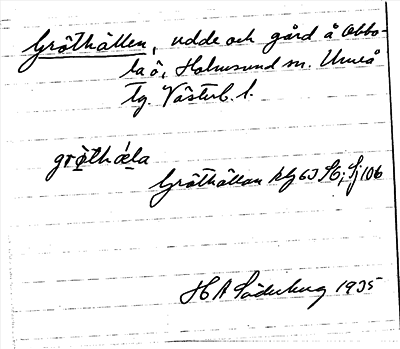 Gröthällen, udde och gård å Obbo-
la ö, Holmsund sn. Umeå
tg. Västerb. l.
gröthǽla
Gröthällan kbg 63 St; Sj 106
H A Söderberg 1935